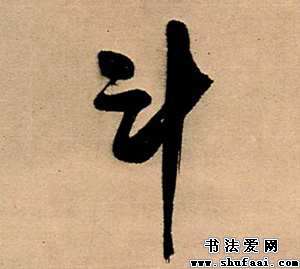 計
书法爱网
www.shufaai.com